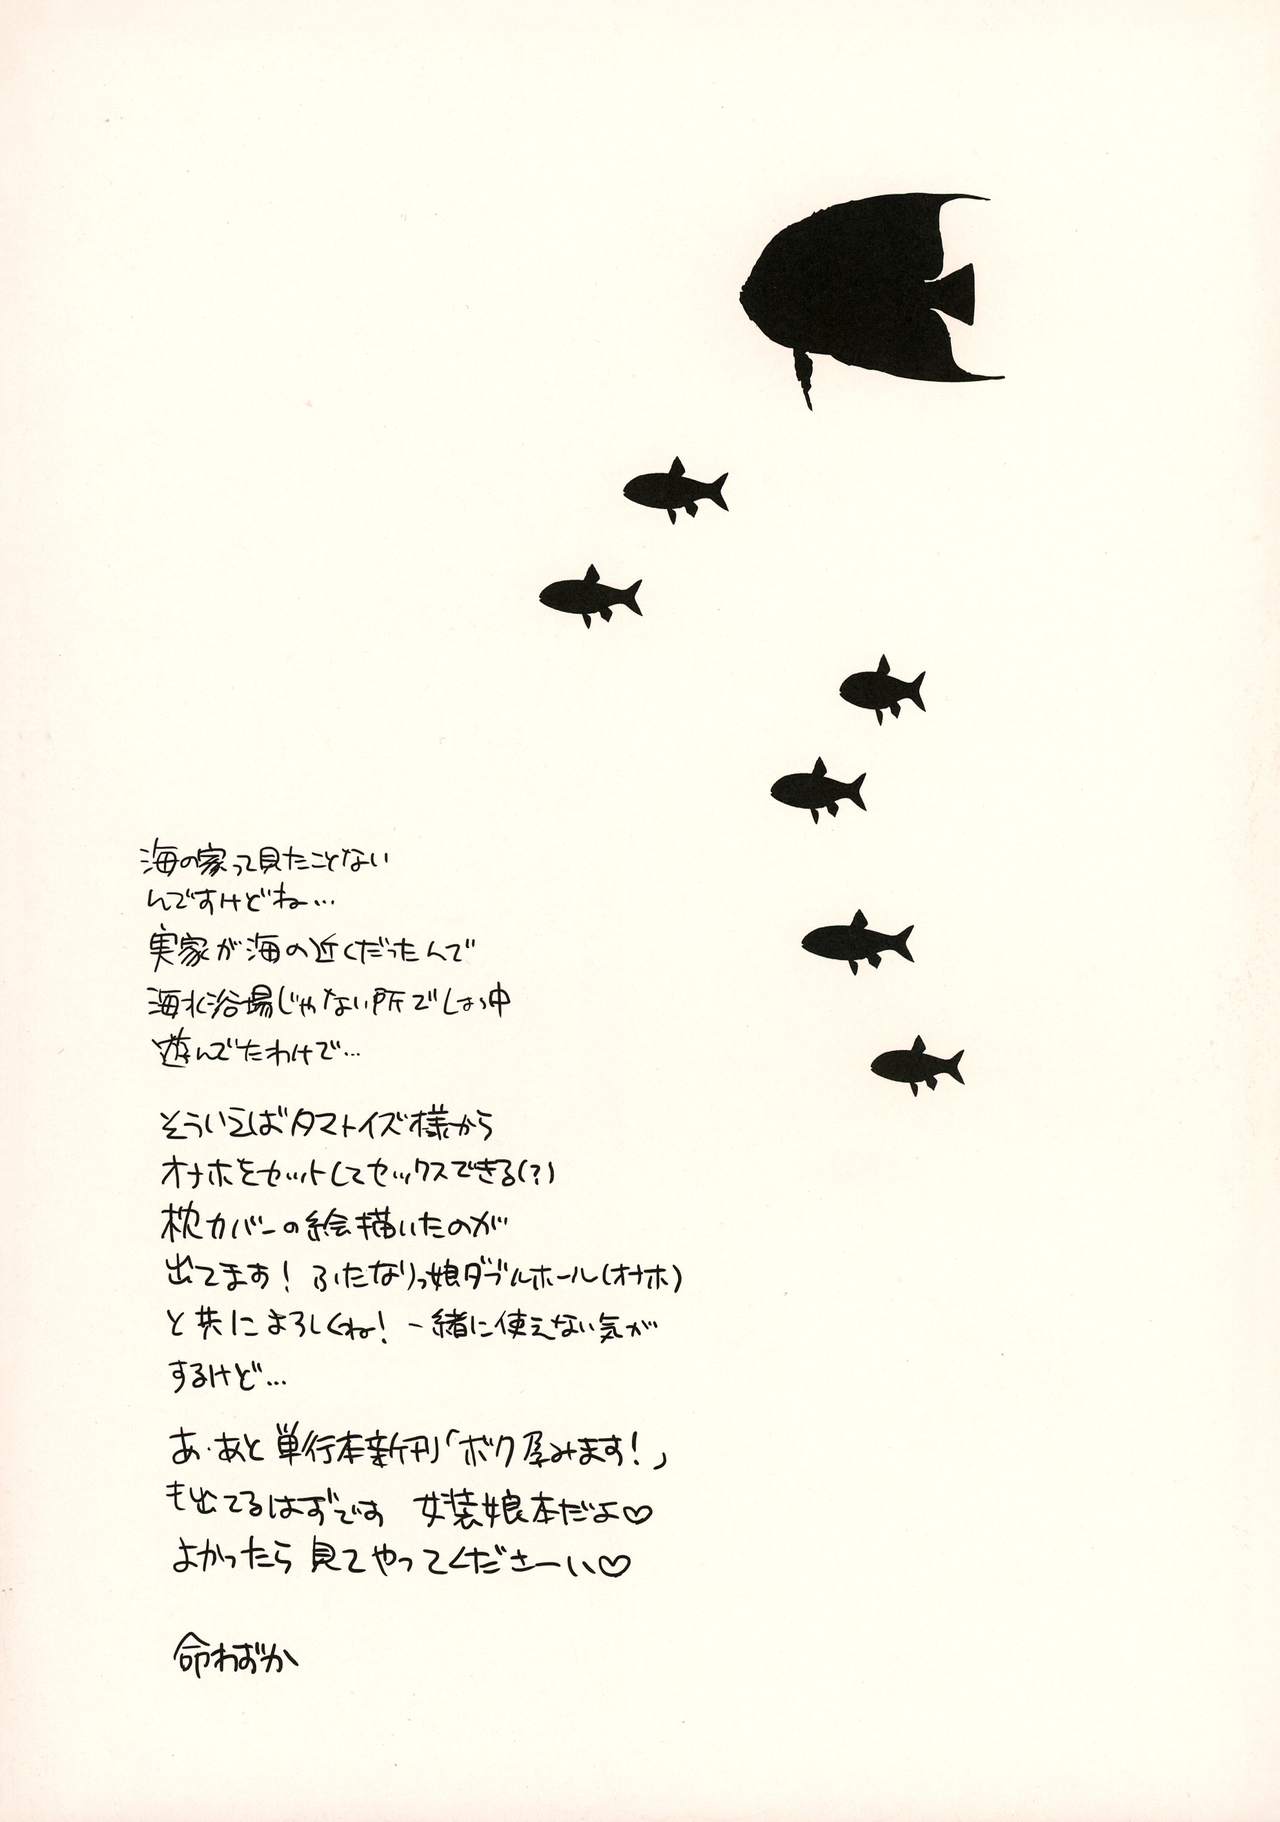 海の家って見たことない
んですけどね…
実家が海の近くだったんで
海水浴場じゃない所でしょっ中
遊んでたわけで…
そういえばタマトイズ様から
オナホをセットしてセックスできる(?)
枕カバーの絵描いたのが
出てます! ふたなりっ娘ダブルホール(オナホ)
と共によろしくね! 一緒に使えない気が
するけど…
あ・あと単行本新刊「ボク孕みます!」
も出てるはずです 女装娘本だよ♡
よかったら見てやってくださーい♡
命わずか